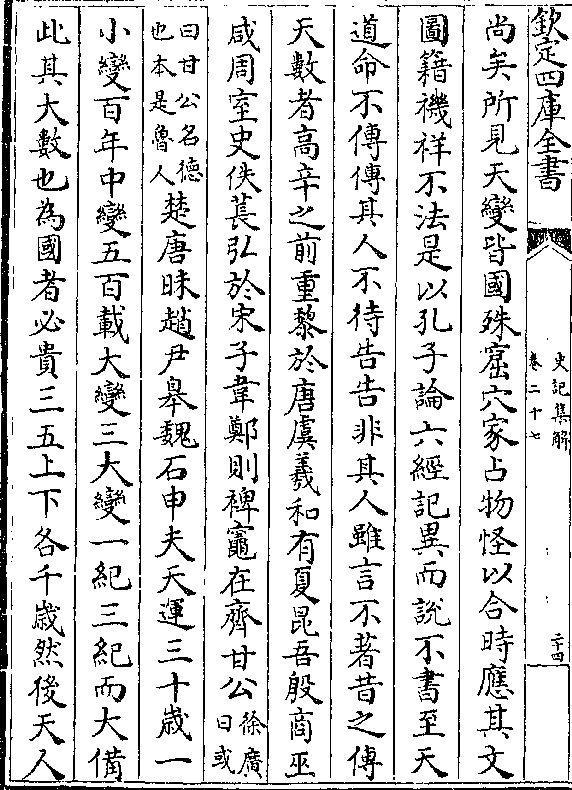 欽定四庫全書
史記集解
卷二十七
二十四
尚矣所見天變皆國殊窟穴家占物怪以合時應其文
圖籍禨祥不法是以孔子論六經記異而說不書至天
道命不傳傳其人不待告告非其人雖言不著昔之傳
天數者高辛之前重黎於唐虞羲和有夏昆吾殷商巫
咸周室史佚萇弘於宋子韋鄭則裨竈在齊甘公徐廣曰或
曰甘公名德也本是魯人楚唐眜趙尹皋魏石申夫天運三十歲一
小變百年中變五百載大變三大變一紀三紀而大備
此其大數也為國者必貴三五上下各千歲然後天人